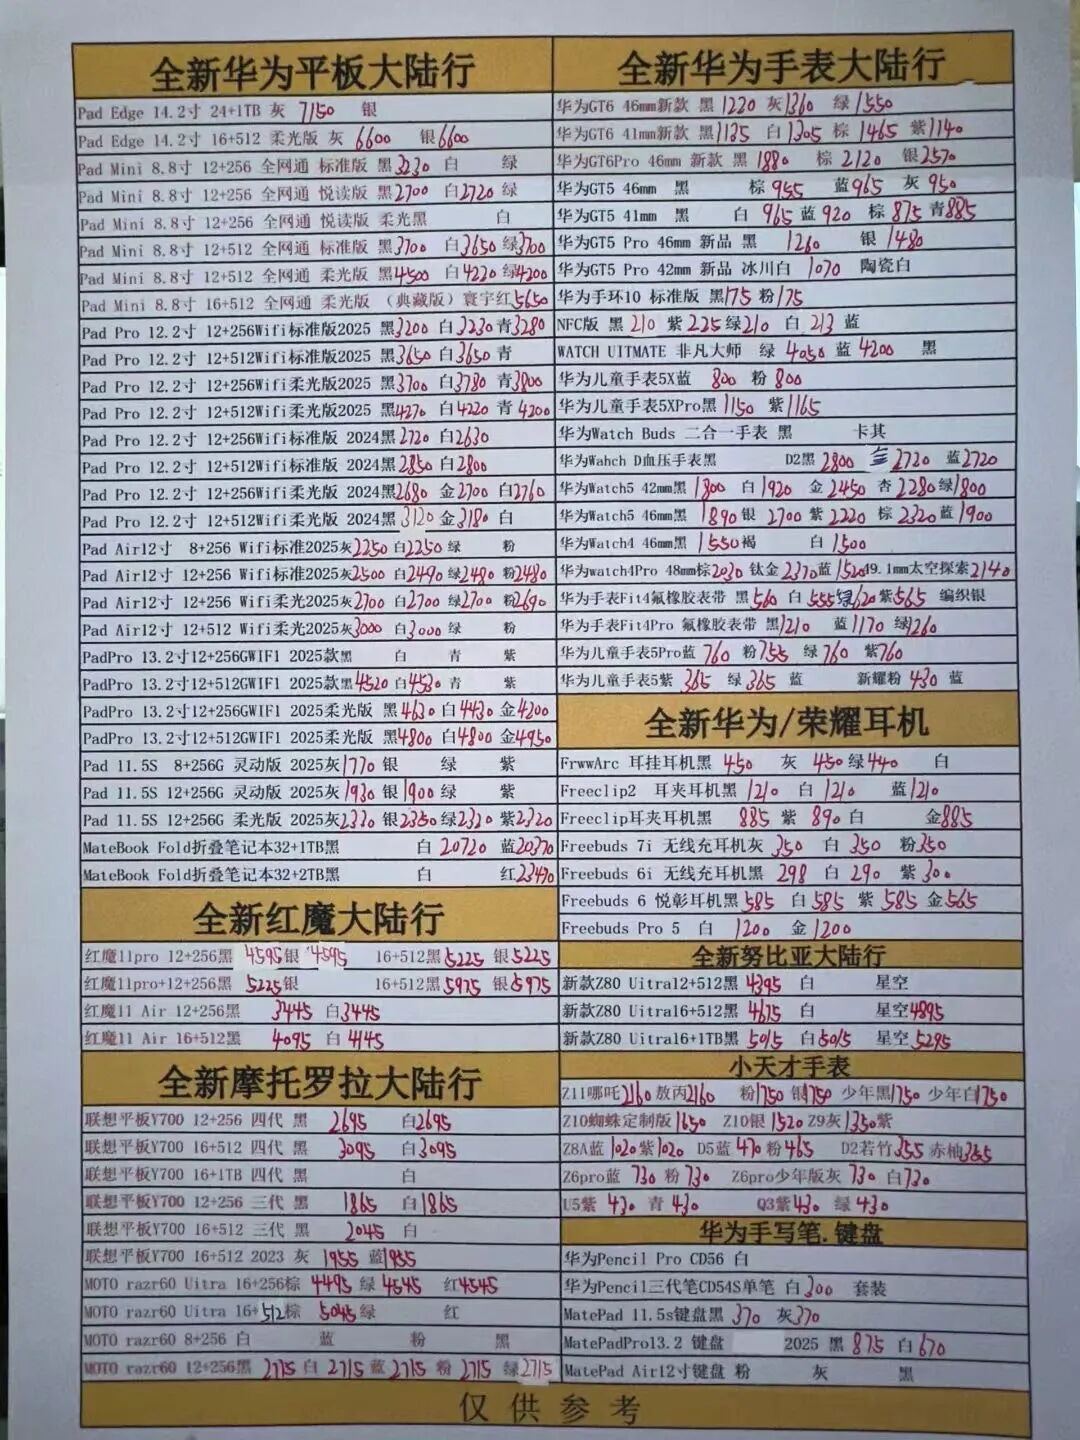 全新华为平板大陆行
Pad Edge 14.2寸 24+1TB 灰 7150 银
Pad Edge 14.2寸 16+512 柔光版 灰 6600 银6600
Pad Mini 8.8寸 12+256 全网通 标准版 黑3230 白 绿
Pad Mini 8.8寸 12+256 全网通 悦读版 黑2700 白2720 绿
Pad Mini 8.8寸 12+256 全网通 悦读版 柔光黑 白
Pad Mini 8.8寸 12+512 全网通 标准版 黑3700 白3650 绿3700
Pad Mini 8.8寸 12+512 全网通 柔光版 黑4500 白4220 绿4200
Pad Mini 8.8寸 16+512 全网通 柔光版 （典藏版）寰宇红5650
Pad Pro 12.2寸 12+256Wifi标准版2025 黑3200 白3230 青3280
Pad Pro 12.2寸 12+512Wifi标准版2025 黑3650 白3650 青
Pad Pro 12.2寸 12+256Wifi柔光版2025 黑3700 白3780 青3800
Pad Pro 12.2寸 12+512Wifi柔光版2025 黑4270 白4220 青4200
Pad Pro 12.2寸 12+256Wifi标准版 2024黑2720 白2630
Pad Pro 12.2寸 12+512Wifi标准版 2024黑2850 白2800
Pad Pro 12.2寸 12+256Wifi柔光版 2024黑2680 金2700 白2760
Pad Pro 12.2寸 12+512Wifi柔光版 2024黑3120 金3180 白
Pad Air12寸 8+256 Wifi标准2025灰2250 白2250 绿 粉
Pad Air12寸 12+256 Wifi标准2025灰2500 白2490 绿2480 粉2480
Pad Air12寸 12+256 Wifi柔光2025灰2700 白2700 绿2700 粉2690
Pad Air12寸 12+512 Wifi柔光2025灰3000 白3000 绿 粉
PadPro 13.2寸12+256GWIFI 2025款黑 白 青 紫
PadPro 13.2寸12+512GWIFI 2025款黑4520 白4530 青 紫
PadPro 13.2寸12+256GWIFI 2025柔光版 黑4630 白4430 金4200
PadPro 13.2寸12+512GWIFI 2025柔光版 黑4800 白4800 金4950
Pad 11.5S 8+256G 灵动版 2025灰1770 银 绿 紫
Pad 11.5S 12+256G 灵动版 2025灰1930 银1900 绿 紫
Pad 11.5S 12+256G 柔光版 2025灰2320 银2350 绿2320 紫2320
MateBook Fold折叠笔记本32+1TB黑 白 20720 蓝20370
MateBook Fold折叠笔记本32+2TB黑 白 红23470
全新红魔大陆行
红魔11pro 12+256黑 4595银 4595 16+512黑5225 银5225
红魔11pro+12+256黑 5225银 16+512黑5975 银5975
红魔11 Air 12+256黑 3445 白3445
红魔11 Air 16+512黑 4095 白 4145
全新摩托罗拉大陆行
联想平板Y700 12+256 四代 黑 2695 白2695
联想平板Y700 16+512 四代 黑 3095 白3095
联想平板Y700 16+1TB 四代 黑 白
联想平板Y700 12+256 三代 黑 1865 白1865
联想平板Y700 16+512 三代 黑 2045 白
联想平板Y700 16+512 2023 灰 1955 蓝1955
MOTO razr60 Uitra 16+256棕 4495 绿 4545 红4545
MOTO razr60 Uitra 16+512棕 5045绿 红
MOTO razr60 8+256 白 蓝 粉 黑
MOTO razr60 12+256黑 2715 白 2715 蓝 2715 粉 2715 绿2715
全新华为手表大陆行
华为GT6 46mm新款 黑 1220 灰1360 绿 1550
华为GT6 41mm新款 黑1135 白1305 棕 1465 紫1140
华为GT6Pro 46mm 新款 黑 1880 棕 2120 银2570
华为GT5 46mm 黑 棕 955 蓝965 灰 950
华为GT5 41mm 黑 白 965 蓝 920 棕 875 青885
华为GT5 Pro 46mm 新品 黑 1260 银 1480
华为GT5 Pro 42mm 新品 冰川白 1070 陶瓷白
华为手环10 标准版 黑175 粉175
NFC版 黑 210 紫 225绿210 白 213 蓝
WATCH UITMATE 非凡大师 绿 4050 蓝 4200 黑
华为儿童手表5X蓝 800 粉 800
华为儿童手表5XPro黑 1150 紫1165
华为Watch Buds 二合一手表 黑 卡其
华为Wahch D血压手表黑 D2黑 2800 金 2720 蓝2720
华为Watch5 42mm黑 1800 白 1920 金 2450 杏 2280绿1800
华为Watch5 46mm黑 1890银 2700 紫 2220 棕 2320蓝1900
华为Watch4 46mm黑 1550褐 白 1500
华为watch4Pro 48mm棕2030 钛金 2370蓝 1520 49.1mm太空探索2140
华为手表Fit4氟橡胶表带 黑 560 白 555绿620紫565 编织银
华为手表Fit4Pro 氟橡胶表带 黑1210 蓝1170 绿1260
华为儿童手表5Pro蓝 760 粉755 绿 760 紫760
华为儿童手表5紫 365 绿 365 蓝 新耀粉 430 蓝
全新华为/荣耀耳机
FrwwArc 耳挂耳机黑 450 灰 450绿440 白
Freeclip2 耳夹耳机黑 1210 白 1210 蓝1210
Freeclip耳夹耳机黑 885 紫 890白 金885
Freebuds 7i 无线充耳机灰 350 白 350 粉350
Freebuds 6i 无线充耳机黑 298 白 290 紫 300
Freebuds 6 悦彰耳机黑 585 白 585 紫 585 金 565
Freebuds Pro 5 白 1200 金 1200
全新努比亚大陆行
新款Z80 Uitra12+512黑 4395 白 星空
新款Z80 Uitra16+512黑 4675 白 星空4895
新款Z80 Uitra16+1TB黑 5015 白5015 星空 5295
小天才手表
Z11哪吒2160 敖丙2160 粉1750 银1750 少年黑1750 少年白1750
Z10蜘蛛定制版1650 Z10银 1520 Z9灰1350紫
Z8A蓝 1020紫1020 D5蓝 470 粉465 D2若竹355 赤柚365
Z6pro蓝 730 粉 730 Z6pro少年版灰 730 白730
U5紫 430 青 430 Q3紫430 绿 430
华为手写笔.键盘
华为Pencil Pro CD56 白
华为Pencil三代笔CD54S单笔 白300 套装
MatePad 11.5s键盘黑 370 灰370
MatePadPro13.2 键盘 2025 黑 875 白670
MatePad Air12寸键盘 粉 灰 黑
仅供参考